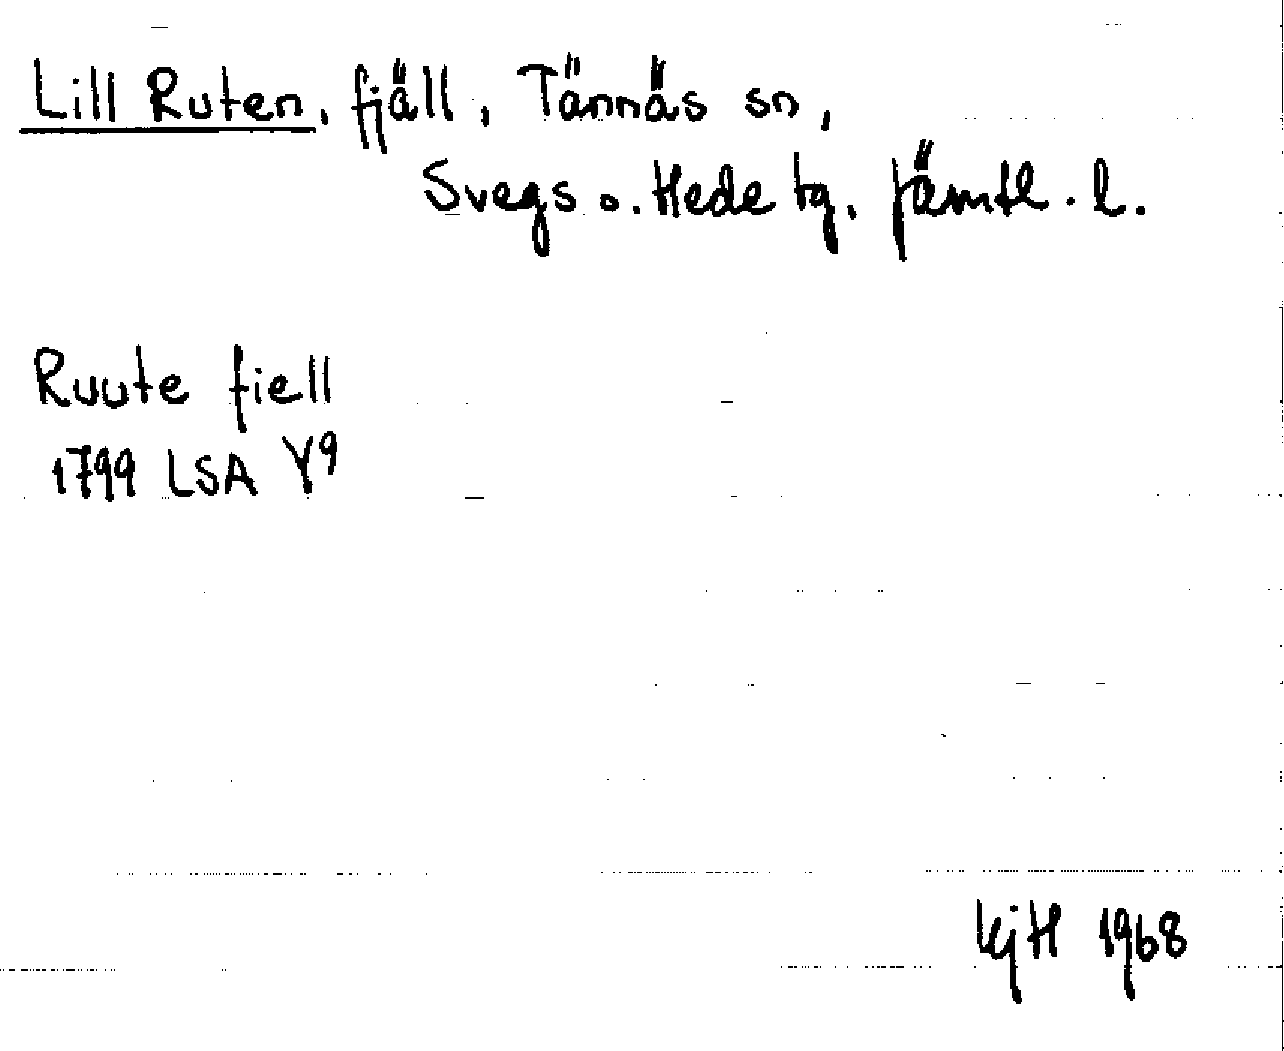 Lill Ruten, fjäll, Tännäs sn,
Svegs o. Hede tg. Jämtl. l.
Ruute fiell
1799 LSA Y9
KjH 1968